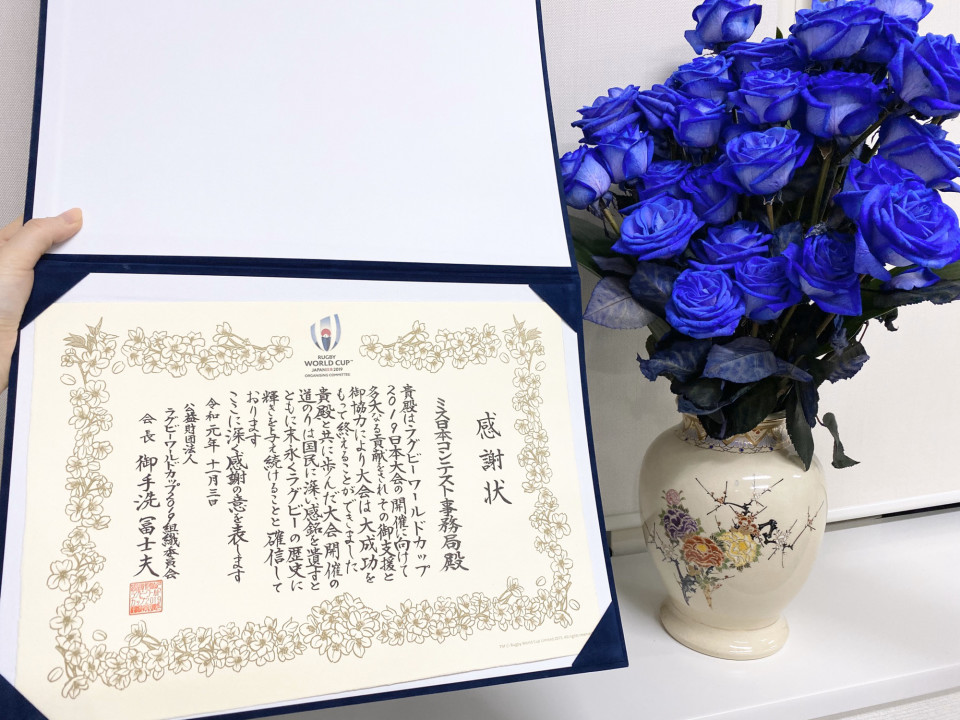 RUGBY
WORLD CUP™
JAPAN 2019
ORGANISING COMMITTEE
感謝状
ミス日本コンテスト事務局殿
貴殿はラグビーワールドカップ
2019日本大会の開催に向けて
多大なる貢献をされその御支援と
御協力により大会は大成功を
もって終えることができました
貴殿と共に歩んだ大会開催の
道のりは国民に深い感銘を遺すと
ともに末永くラグビーの歴史に
輝きを与え続けることと確信して
おります
ここに深く感謝の意を表します
令和元年十一月三日
公益財団法人
ラグビーワールドカップ2019組織委員会
会長 御手洗冨士夫